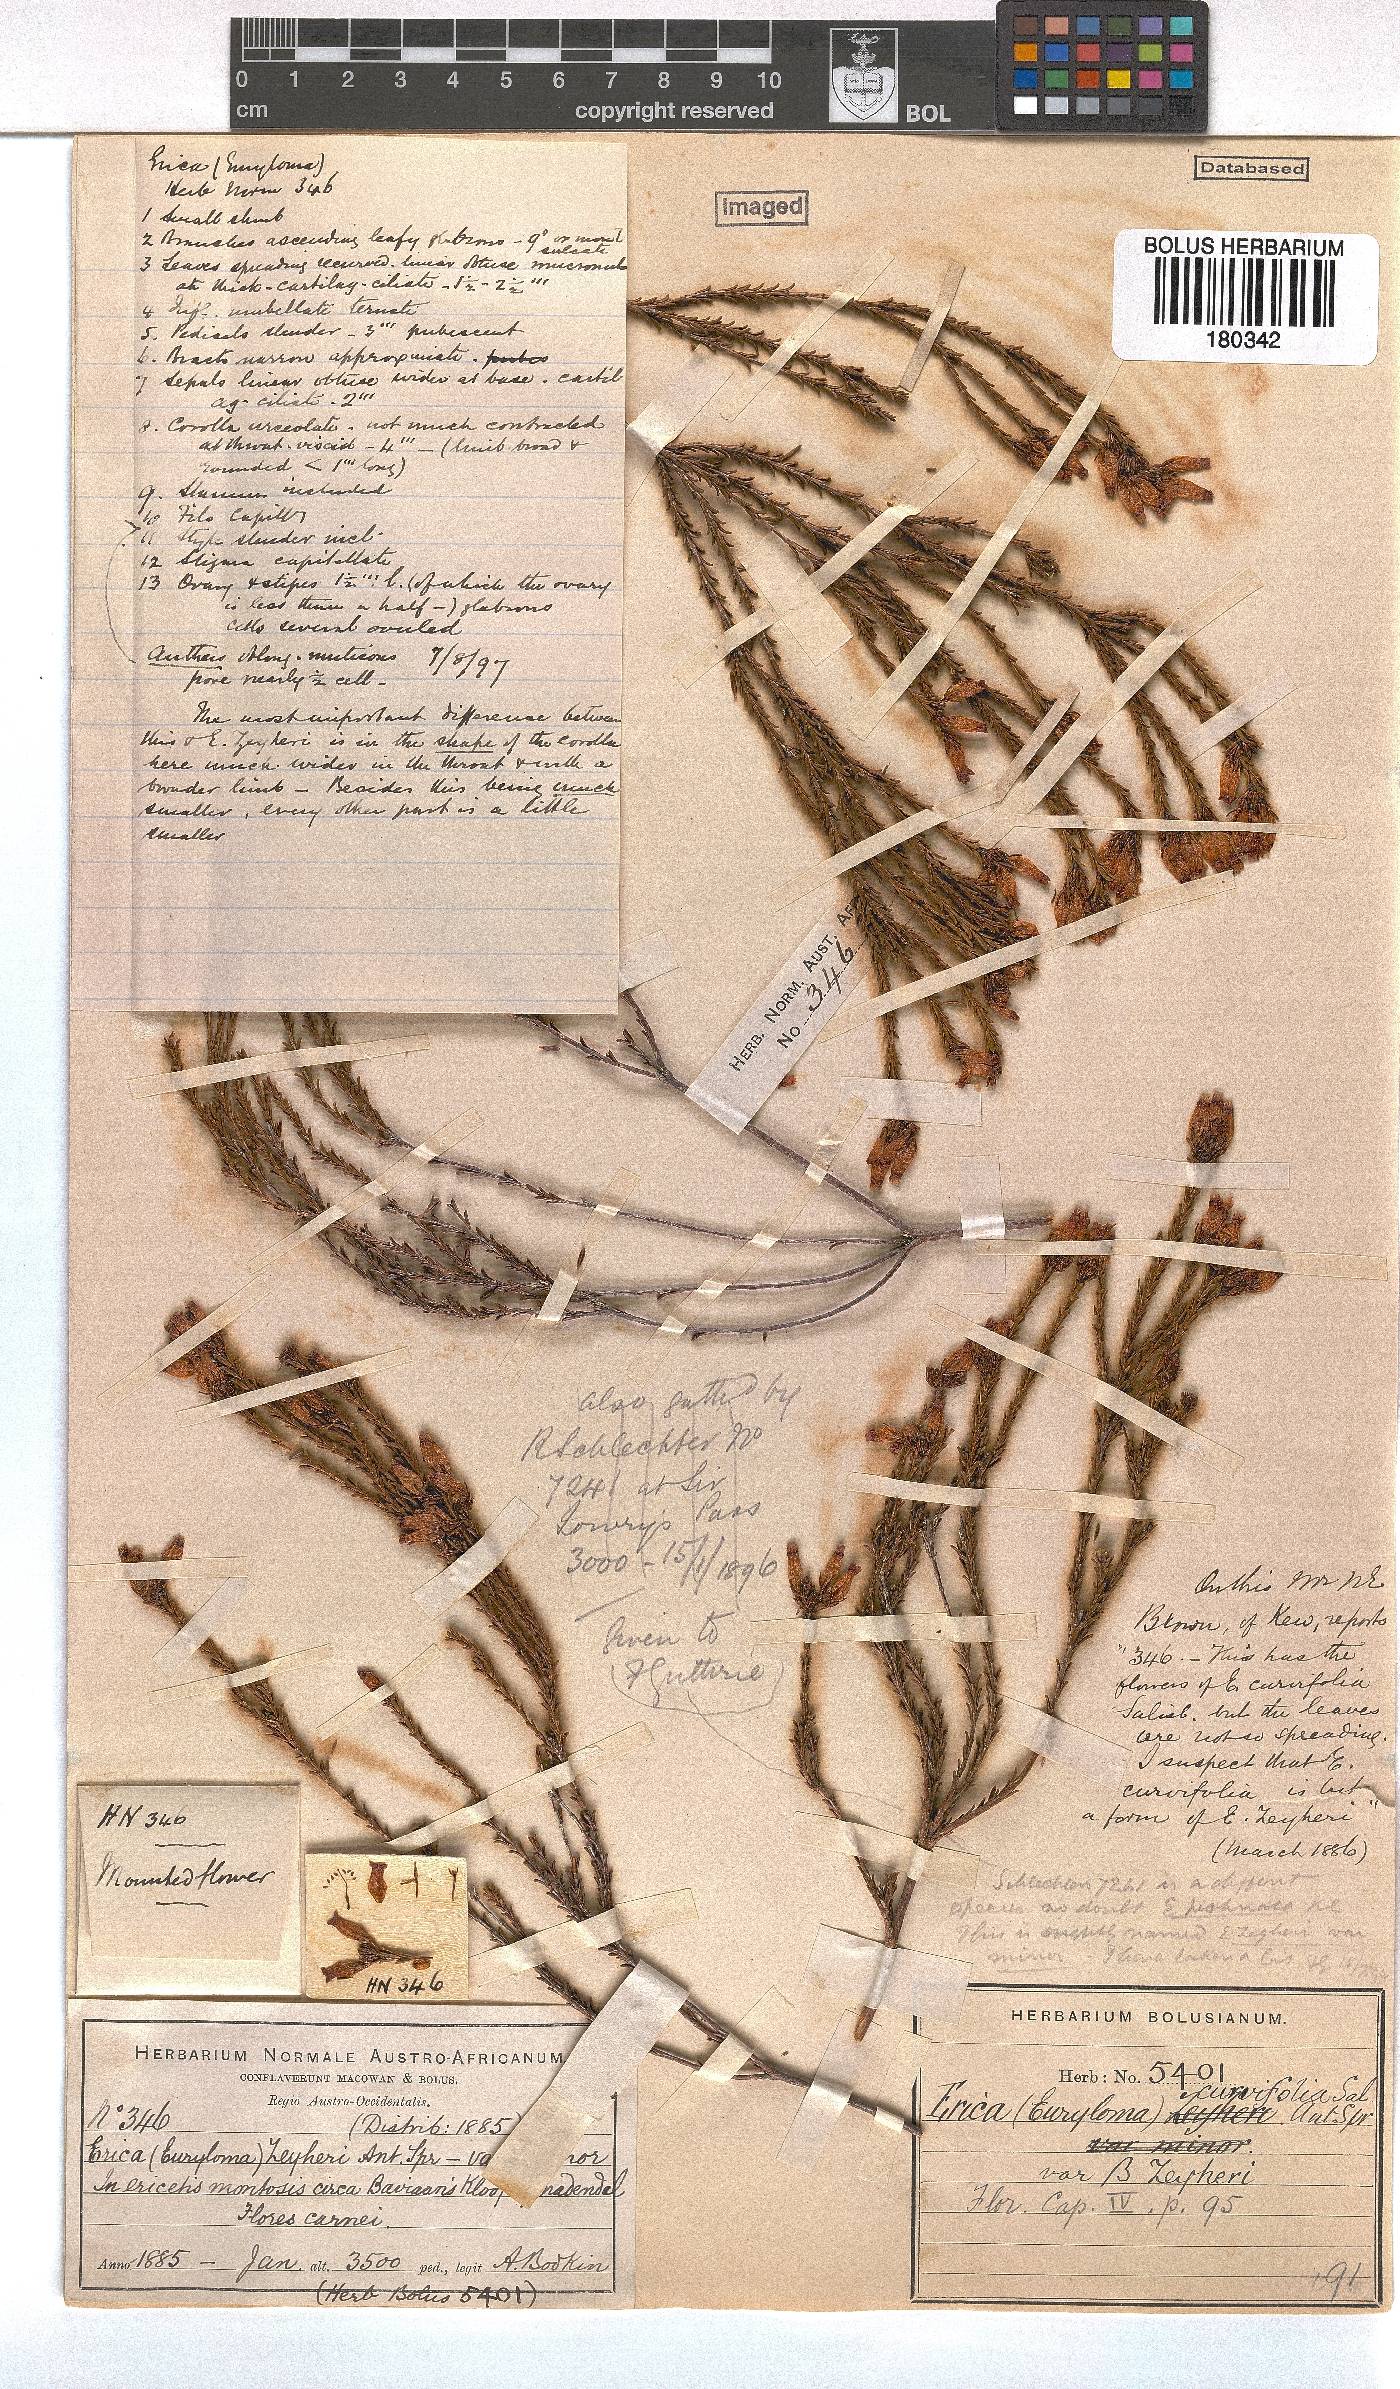 0 1 2 3 4 5 6 7 8 9 10
cm
copyright reserved
BOL
Databased
Imaged
BOLUS HERBARIUM
180342
Erica (Euryloma)
Herb Norm 346
1 Small shrub
2 Branches ascending leafy glabrous - 9" or more
3 Leaves spreading recurved linear obtuse sulcate mucronul
ate thick-cartilag-ciliate - 1½ - 2½'''
4 Infl. umbellate ternate
5. Pedicels slender - 3''' pubescent
6. Bracts narrow approximate.
7 Sepals linear obtuse wider at base. cartil
ag-ciliate - 2'''
8. Corolla urceolate - not much contracted
at throat. viscid - 4''' - (limb broad &
rounded < 1''' long)
9. Stamens included
10 Fils capilly
11 Style slender incl.
12 Stigma capitellate
13 Ovary & stipes 1½''' l. (of which the ovary
is less than a half -) glabrous
cells several ovuled
Anthers oblong. muticous 7/8/97
pore nearly ½ cell -
The most important difference between
this & E. Zeyheri is in the shape of the corolla
here much wider in the throat & with a
broader limb - Besides this being much
smaller, every other part is a little
smaller
HERB. NORM. AUST. AF
No 346
Also gathd by
R Schlechter No
7241 at Sir
Lowry's Pass
3000 - 15/1/1896
Given to
(F Guthrie)
On this Mr N E
Brown, of Kew, reports
"346. - This has the
flowers of E curvifolia
Salisb. but the leaves
are not so spreading.
I suspect that E.
curvifolia is but
a form of E. Zeyheri"
(March 1886)
Schlechter 7241 is a different
species no doubt
This is rightly named E Zeyheri var
minor. I have taken
HN 346
Mounted flower
HN 346
HERBARIUM NORMALE AUSTRO-AFRICANUM
CONFLAVERUNT MACOWAN & BOLUS.
Regio Austro-Occidentalis.
No 346 (Distrib: 1885)
Erica (Euryloma) Zeyheri Ant. Spr - va nor
In ericetis montosis circa Baviaans Kloo nadendal
Flores carnei.
Anno 1885 - Jan. alt. 3500 ped., legit A. Bodkin
(Herb Bolus 5401)
HERBARIUM BOLUSIANUM.
Herb: No. 5401
curvifolia Sal
Erica (Euryloma) Zeyheri Ant. Spr
var minor.
var β Zeyheri
Flor. Cap. IV. p. 95
191